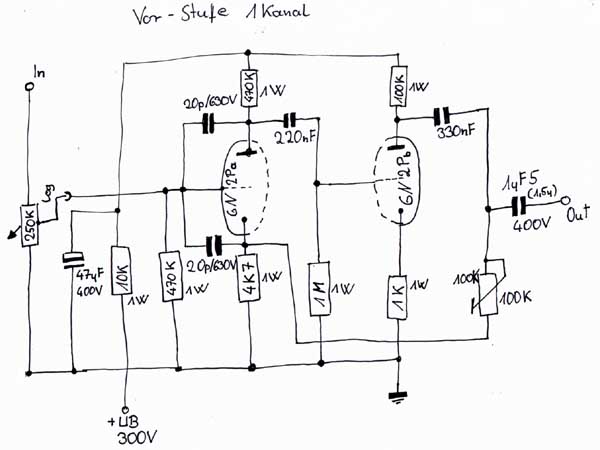 Vor-Stufe 1 Kanal
In
20p/630V
470K
1W
220nF
100K
1W
330nF
6N2Pa
6N2Pb
log
250K
1µF5
(1,5µ)
400V
Out
47µF
400V
10K
1W
470K
1W
20p/630V
4K7
1W
1M
1W
1K
1W
100K
100K
+UB
300V